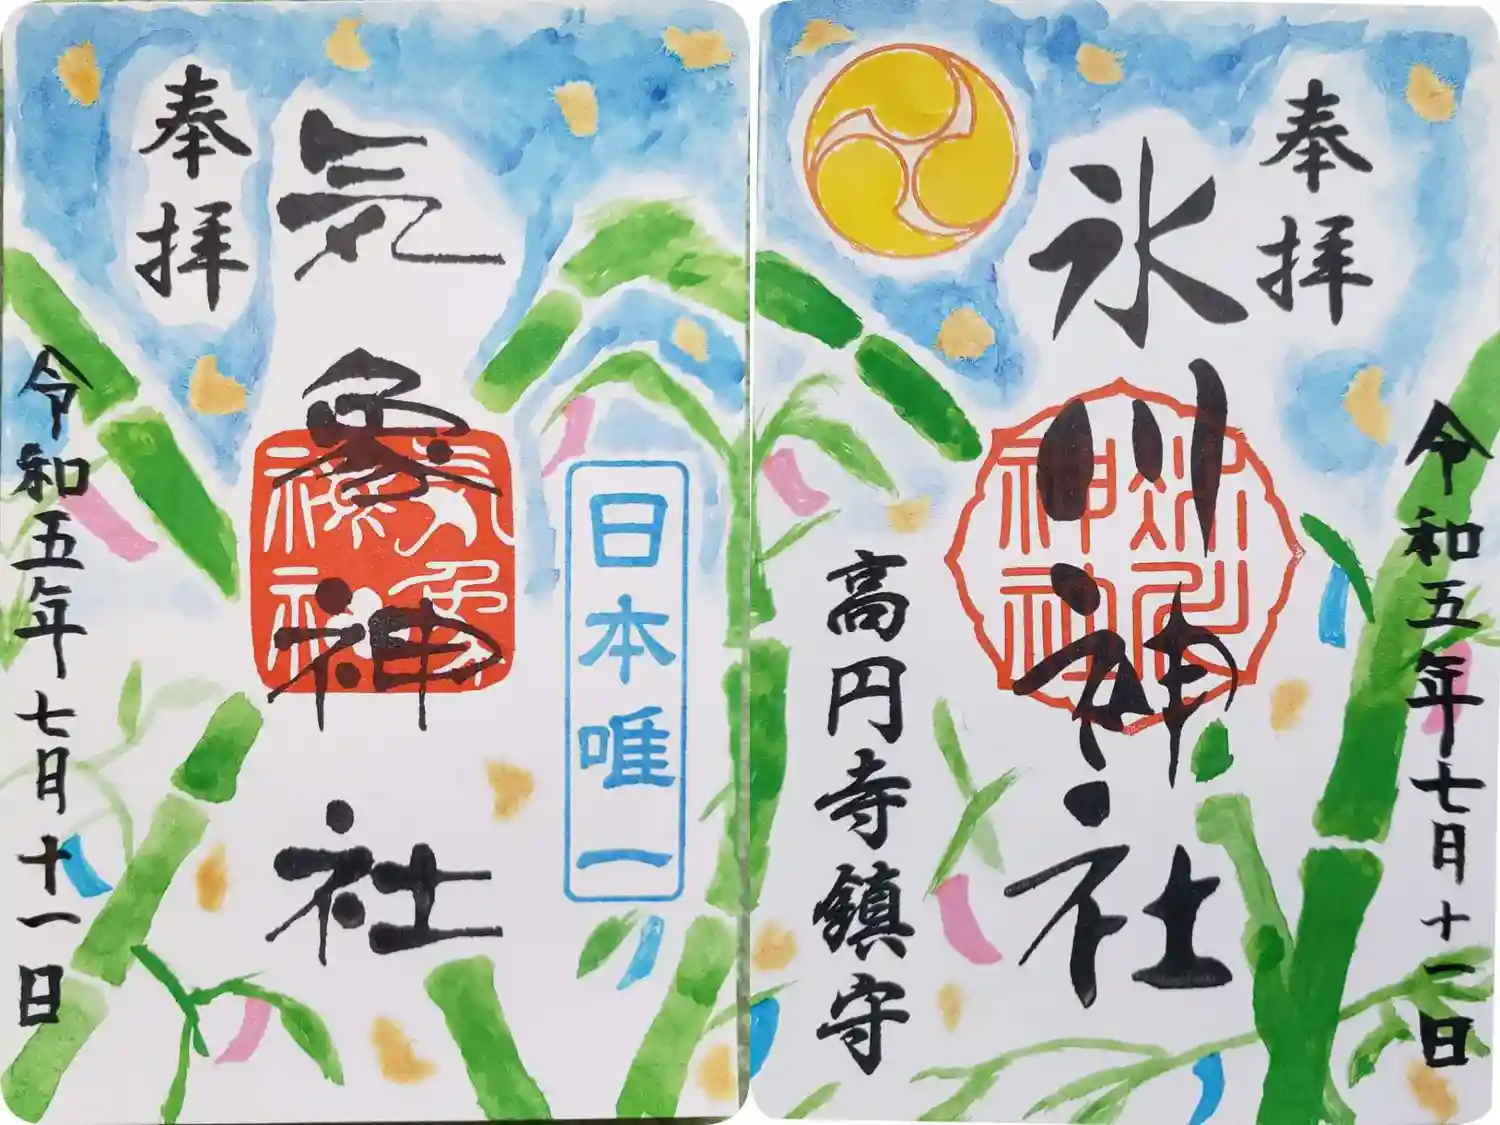 奉拝
氷川神社
氷川
神社
高円寺鎮守
令和五年七月十一日
奉拝
気象神社
気象
神社
日本唯一
令和五年七月十一日